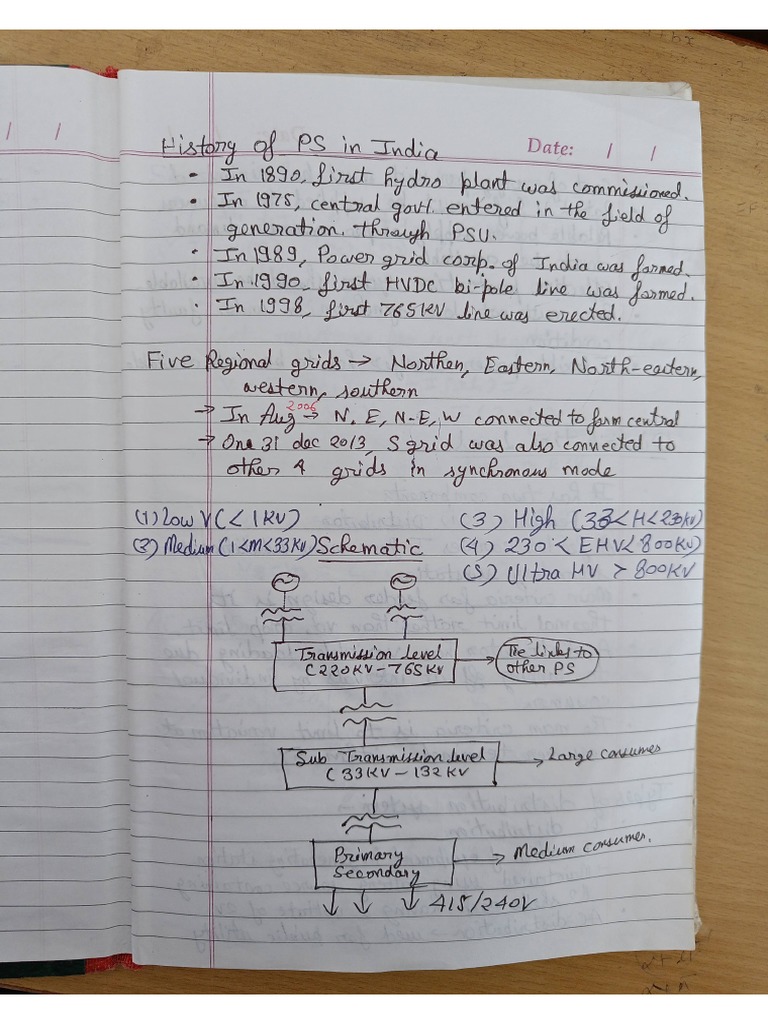 Date: / /
History of PS in India
• In 1890, first hydro plant was commissioned.
• In 1975, central govt. entered in the field of
generation. through PSU.
• In 1989, Power grid corp. of India was formed.
• In 1990, first HVDC bi-pole line was formed.
• In 1998, first 765KV line was erected.
Five Regional grids → Northen, Eastern, North-eastern,
western, southern
→ In Aug 2006 → N, E, N-E, W connected to form central
→ One 31 dec 2013, S grid was also connected to
other 4 grids in synchronous mode
(1) Low V (< 1KV) (3) High (33<H<230KV)
(2) Medium (1<M<33KV) Schematic (4) 230 < EHV < 800KV)
(5) Ultra HV > 800KV
Transmission level
(220KV-765KV
Tie links to
other PS
Sub Transmission level
(33KV-132KV
→ Large consumer
Primary
Secondary
→ Medium consumer.
415/240V